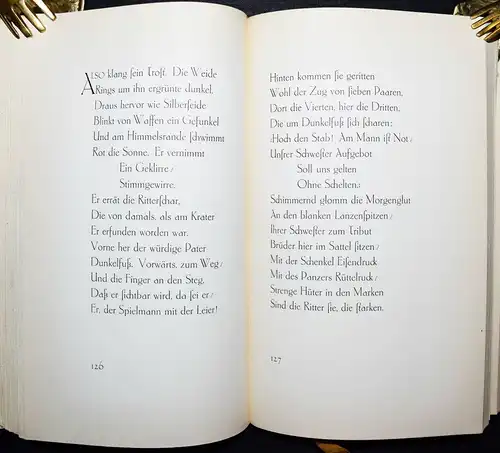 ALSO klang ſein Troſt. Die Weide
Rings um ihn ergrünte dunkel.
Draus hervor wie Silberſeide
Blinkt von Waffen ein Gefunkel
Und am Himmelsrande ſchwimmt
Rot die Sonne. Er vernimmt
Ein Geklirre/
Stimmgewirre.
Er errät die Ritterſchar,
Die von damals, als am Krater
Er erfunden worden war.
Vorne her der würdige Pater
Dunkelfuſs. Vorwärts, zum Weg/
Und die Finger an den Steg,
Daſs er ſichtbar wird, da ſei er/
Er, der Spielmann mit der Leier!
126
Hinten kommen ſie geritten
Wohl der Zug von ſieben Paaren,
Dort die Vierten, hier die Dritten,
Die um Dunkelfuſs ſich ſcharen:
›Hoch den Stab! Am Mann iſt Not/
Unſrer Schweſter Aufgebot
Soll uns gelten
Ohne Schelten‹
Schimmernd glomm die Morgenglut
An den blanken Lanzenſpitzen/
Ihrer Schweſter zum Tribut
Brüder hier im Sattel ſitzen/
Mit der Schenkel Eiſendruck
Mit des Panzers Rüttelruck/
Strenge Hüter in den Marken
Sind die Ritter ſie, die ſtarken.
127